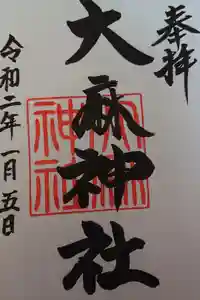 奉拝
大麻神社
大麻
神社
令和二年一月五日